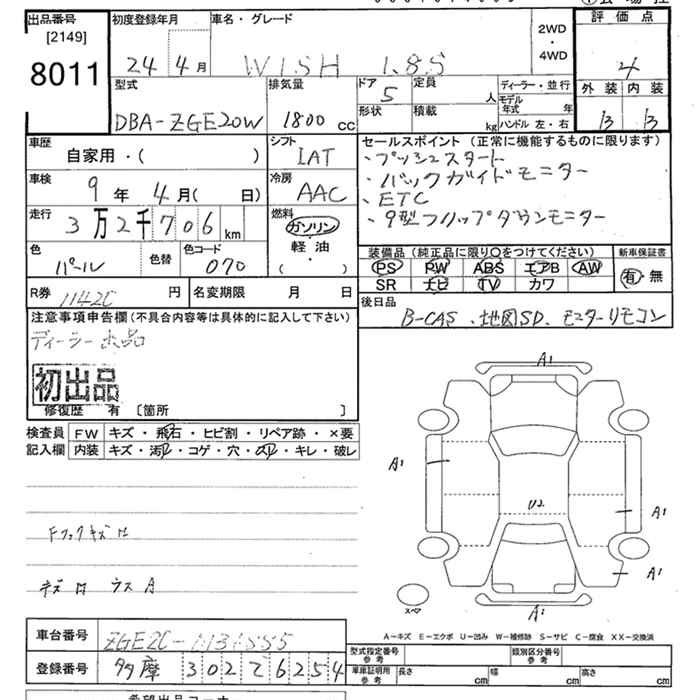 出品番号 初度登録年月 車名・グレード 2WD・4WD 評価点
[2149]
8011 24 4月 WISH 1.8S 4
型式 排気量 ドア 5 定員 人 ディーラー・並行 外装 内装
DBA-ZGE20W 1800 cc 形状 積載 kg モデル年式 年 ハンドル 左・右 B B
車歴 シフト セールスポイント (正常に機能するものに限ります)
自家用・( ) IAT ・プッシュスタート
車検 冷房 ・バックガイドモニター
9年 4月( 日) AAC ・ETC
走行 燃料 ・9型フリップダウンモニター
3万2千706km ガソリン
軽・油
( )
色 色替 色コード 装備品 (純正品に限り○をつけてください) 新車保証書
パール 070 PS PW ABS エアB AW 有・無
SR ナビ TV カワ
R券 円 名変期限 月 日 後日品
B-CAS、地図SD、モニターリモコン
注意事項申告欄 (不具合内容等は具体的に記入して下さい)
ディーラー出品
初出品
修復歴 有 [箇所 ]
検査員 FW キズ・飛石・ヒビ割・リペア跡・×要
記入欄 内装 キズ・汚レ・コゲ・穴・スレ・キレ・破レ
A1
A1
U2
A1
A1
A1
スペア
Fフックキズ
キズ
A-キズ E-エクボ U-凹み W-補修跡 S-サビ C-腐食 XX-交換済
車台番号
型式指定番号 参考 類別区分番号 参考
登録番号 多摩 302 て 6254
車庫証明用 参考 長さ cm 幅 cm 高さ cm